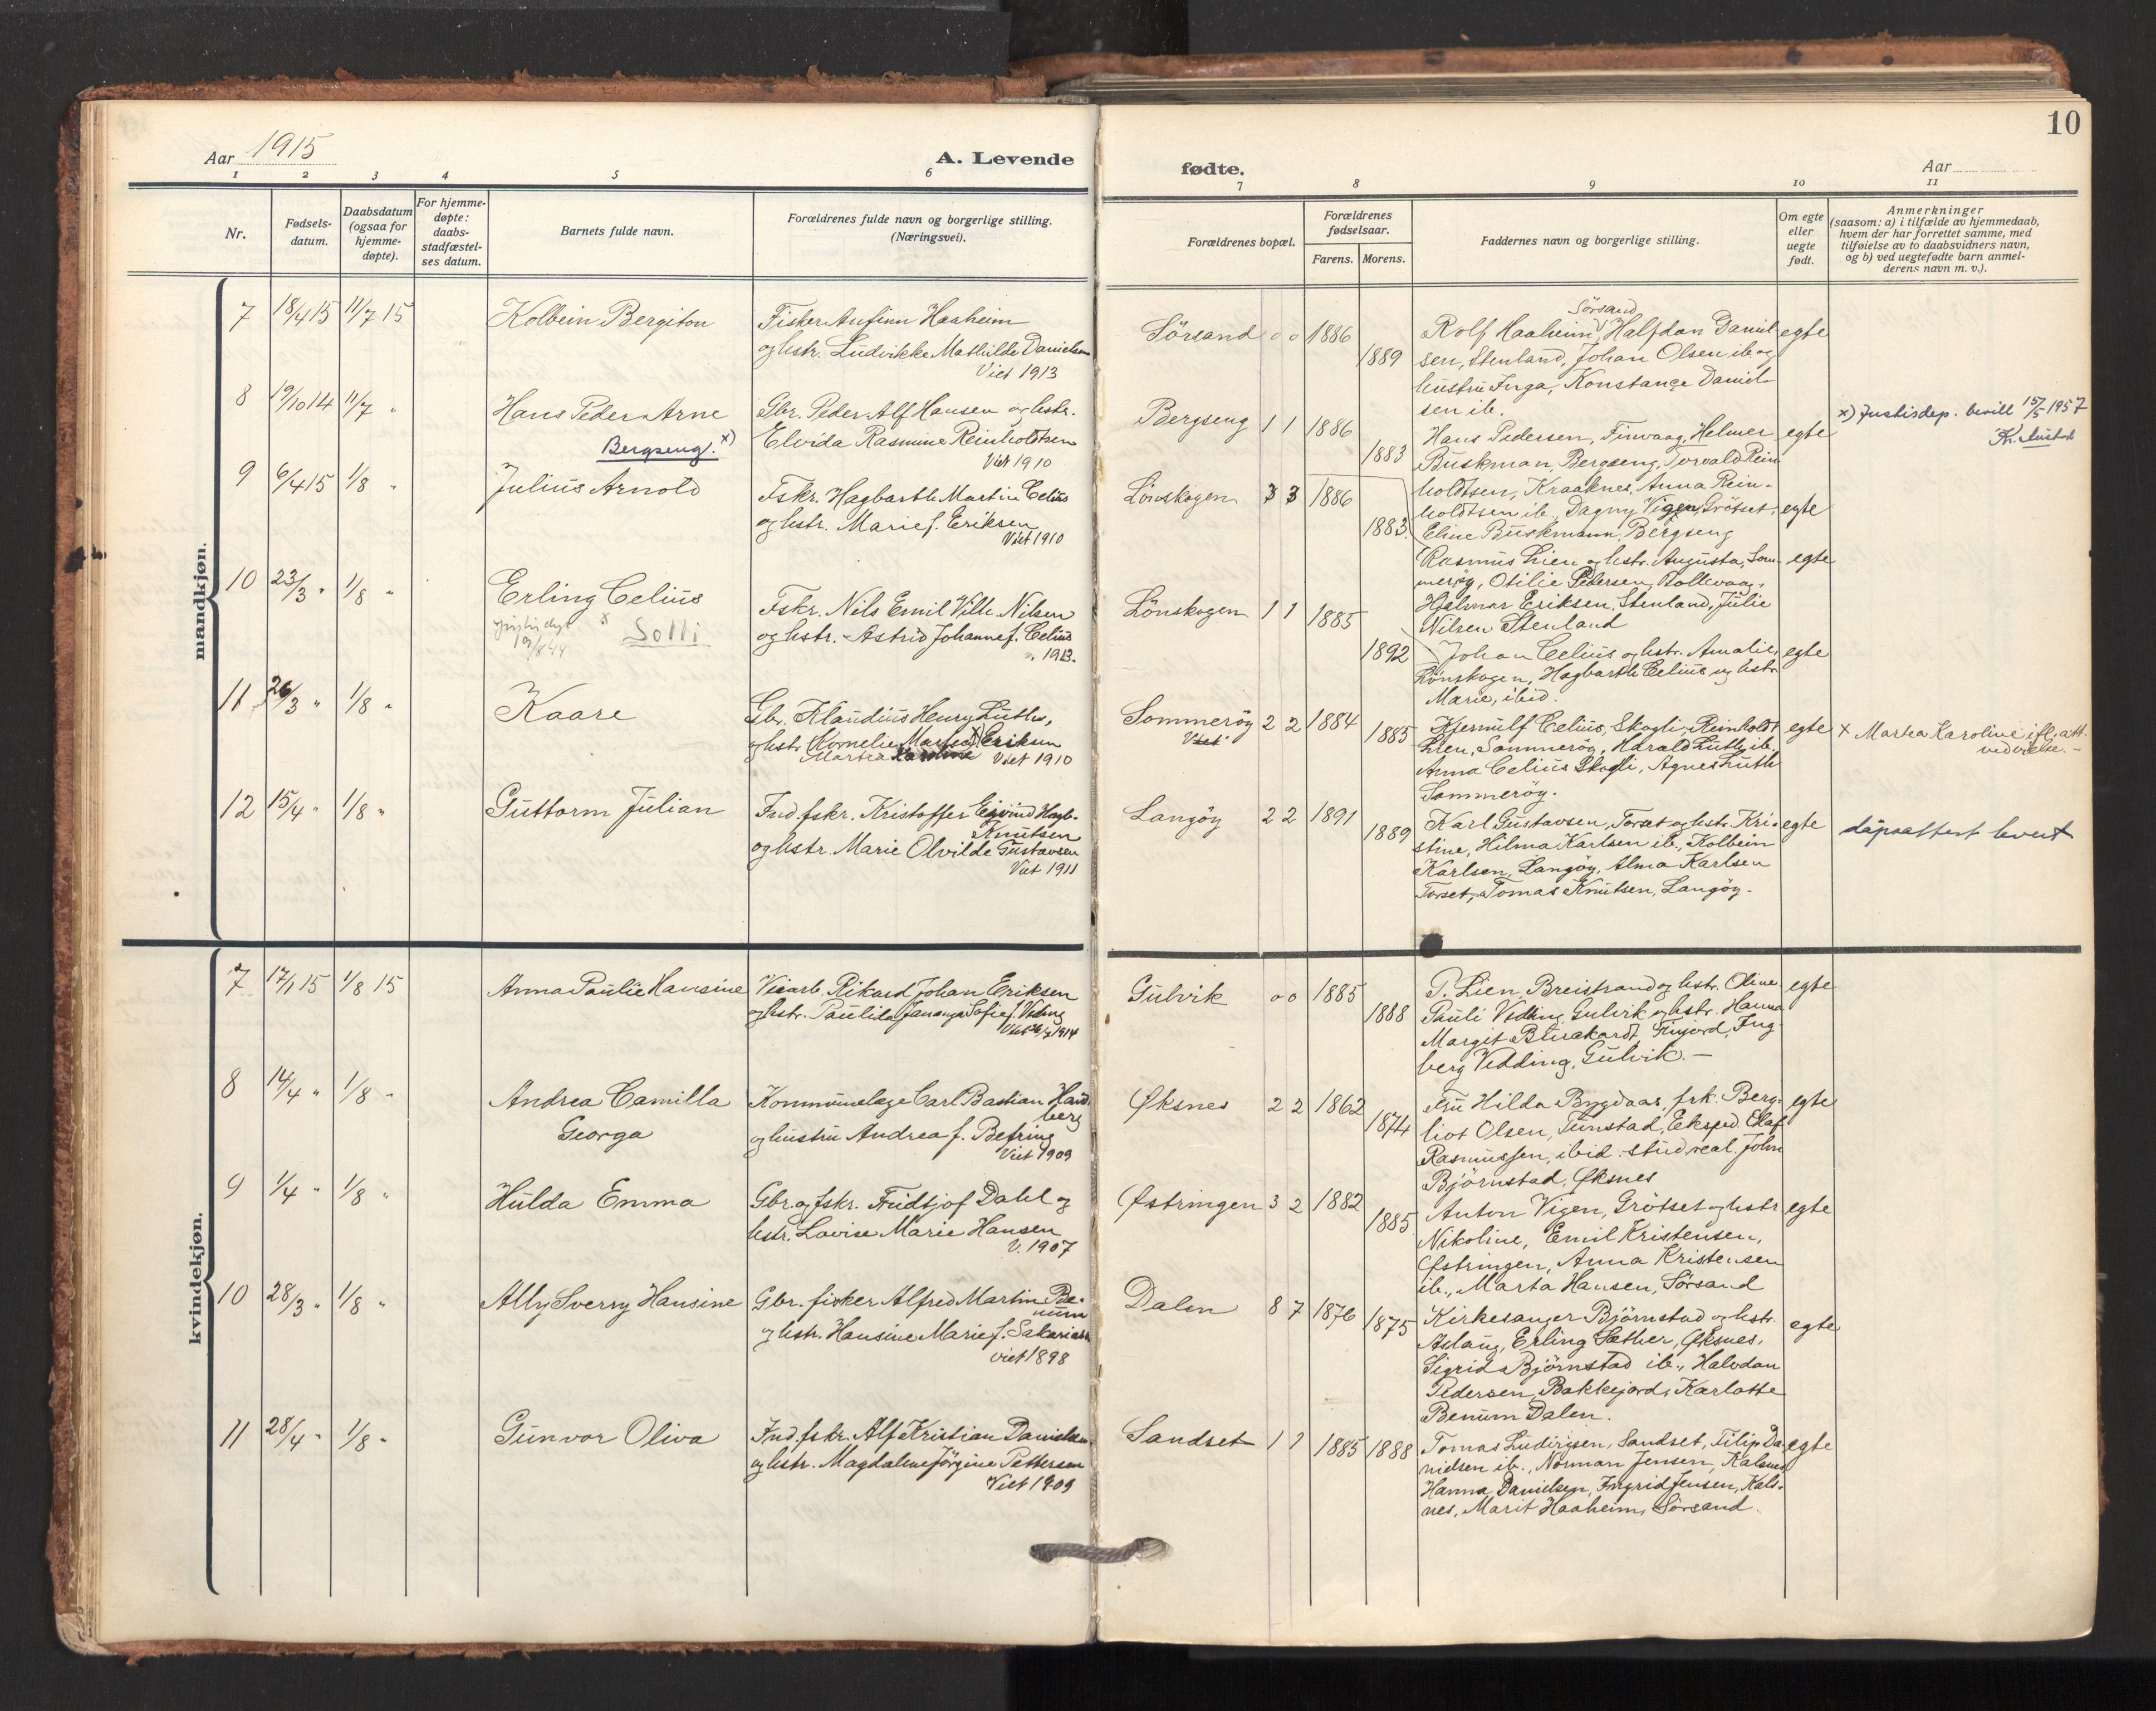 Aar 1915
A. Levende
1 2 3 4 5 6
Nr.
Fødsels-
datum.
Daabsdatum
(ogsaa for
hjemme-
døpte).
For hjemme-
døpte:
daabs-
stadfæstel-
ses datum.
Barnets fulde navn.
Forældrenes fulde navn og borgerlige stilling.
(Næringsvei).
mandkjøn.
7 18/4 15 11/7 15 Kolbein Bergiton Fisker Anfinn Haaheim
og hstr. Ludvikke Mathilde Danielsen
Viet 1913
8 19/10 14 11/7 " Hans Peder Arne Gbr. Peder Alf Hansen og hstr.
Bergseng. x) Elvida Rasmine Reinholdtsen
Viet 1910
9 6/4 15 1/8 " Julius Arnold Fskr. Hagbarth Martin Celius
og hstr. Marie f. Eriksen
Viet 1910
10 23/3 " 1/8 " Erling Celius Fskr. Nils Emil Vilh. Nilsen
Solli og hstr. Astrid Johanne f. Celius
" 1913.
11 26/3 " 1/8 " Kaare Gbr. Klaudius Henry Luth,
og hstr. Kornelie Martea x) Eriksen
Martea Karoline Viet 1910
12 15/4 " 1/8 " Guttorm Julian Ind. fskr. Kristoffer Eivind Hagb.
Knutsen
og hstr. Marie Olvilde Gustavsen
Viet 1911
kvindekjøn.
7 17/1 15 1/8 15 Anna Paulie Hansine Veiarb. Rikard Johan Eriksen
og hstr. Paulida Sofie f. Veding
1914
8 14/4 " 1/8 " Andrea Camilla Kommunelæge Carl Bastian Hand-
berg
Georga og hustru Andrea f. Befring
Viet 1909
9 1/4 " 1/8 " Hulda Emma Gbr. og fskr. Fridtjof Dahl og
hstr. Lovise Marie Hansen
V. 1907
10 28/3 " 1/8 " Ally Sverry Hansine Gbr. fisker Alfred Martin Be-
num
og hstr. Hansine Marie f. Sakariass.
viet 1898
11 28/4 " 1/8 " Gunvor Oliva Ind. fskr. Alf Kristian Danielsen
og hstr. Magdalene Jörgine Pettersen
Viet 1909
10
fødte.
Aar
7 8 9 10 11
Forældrenes bopæl.
Forældrenes
fødselsaar.
Farens. Morens.
Faddernes navn og borgerlige stilling.
Om egte
eller
uegte
født.
Anmerkninger
(saasom: a) i tilfælde av hjemmedaab,
hvem der har forrettet samme, med
tilføielse av to daabsvidners navn,
og b) ved uegtefødte barn anmel-
derens navn m. v.).
Sörsand
Sörsand 0 0 1886 1889 Rolf Haaheim, Halfdan Daniel- egte
sen, Stenland, Johan Olsen ib. og
hustru Inga, Konstance Daniel-
sen ib.
Bergseng 1 1 1886 1883 Hans Pedersen, Finvaag, Helmer egte
x) Justisdep. bevill 15/5 1957
Kr. Austad
Buskman, Bergseng, Torvald Rein-
holdtsen, Kraaknes, Anna Rein-
holdtsen ib., Dagny Vigen, Grötset,
Eline Buskmann, Bergseng
Lönskogen 3 3 1886 1883. egte
Rasmus Lien og hstr. Augusta, Som- egte
meröy, Otilie Pedersen, Bollevaag,
Hjalmar Eriksen, Stenland, Julie
Nilsen Stenland
Lönskogen 1 1 1885 1892 Johan Celius og hstr. Amalie, egte
Lönskogen, Hagbarth Celius og hstr.
Marie, ibid.
Sommeröy 2 2 1884 1885 Hjermulf Celius, Skogli, Reinholdt egte x Martea Karoline ifl. att.
Viet
Lien, Sommeröy, Harald Luth ib.
Anna Celius Skogli, Agnes Luth
Sommeröy.
Langöy 2 2 1891 1889 Karl Gustavsen, Torset og hstr. Kri- egte dåpsattest levert
stine, Hilma Karlsen ib., Kolbein
Karlsen, Langöy, Alma Karlsen
Torset, Tomas Knutsen, Langöy.
Gulvik 0 0 1885 1888 P. Lien, Breistrand og hstr. Oline egte
Pauli Vedding, Gulvik og hstr. Hanna
Margit Finjord, Ing-
berg Vedding, Gulvik. —
Øksnes 2 2 1862 1874 Fru Hilda Bygdaas, frk. Berg- egte
liot Olsen, Tunstad, Eksped. Olaf
Rasmussen, ibid. stud. real. John
Björnstad, Øksnes
Østringen 3 2 1882 1885 Anton Vigen, Grötset og hstr. egte
Nikoline, Emil Kristensen,
Østringen, Anna Kristensen
ib., Marta Hansen, Sörsand
Dalen 8 7 1876 1875 Kirkesanger Björnstad og hstr. egte
Aslaug, Erling Sæther, Øksnes,
Sigrid Björnstad ib., Halvdan
Pedersen, Bakkejord, Karlotte
Benum Dalen.
Sandset 1 1 1885 1888 Tomas Ludvigsen, Sandset, Filip Da- egte
nielsen ib., Norman Jensen, Kalsnes
Hanna Danielsen, Ingrid Jensen, Kals-
nes, Marit Haaheim, Sörsand.